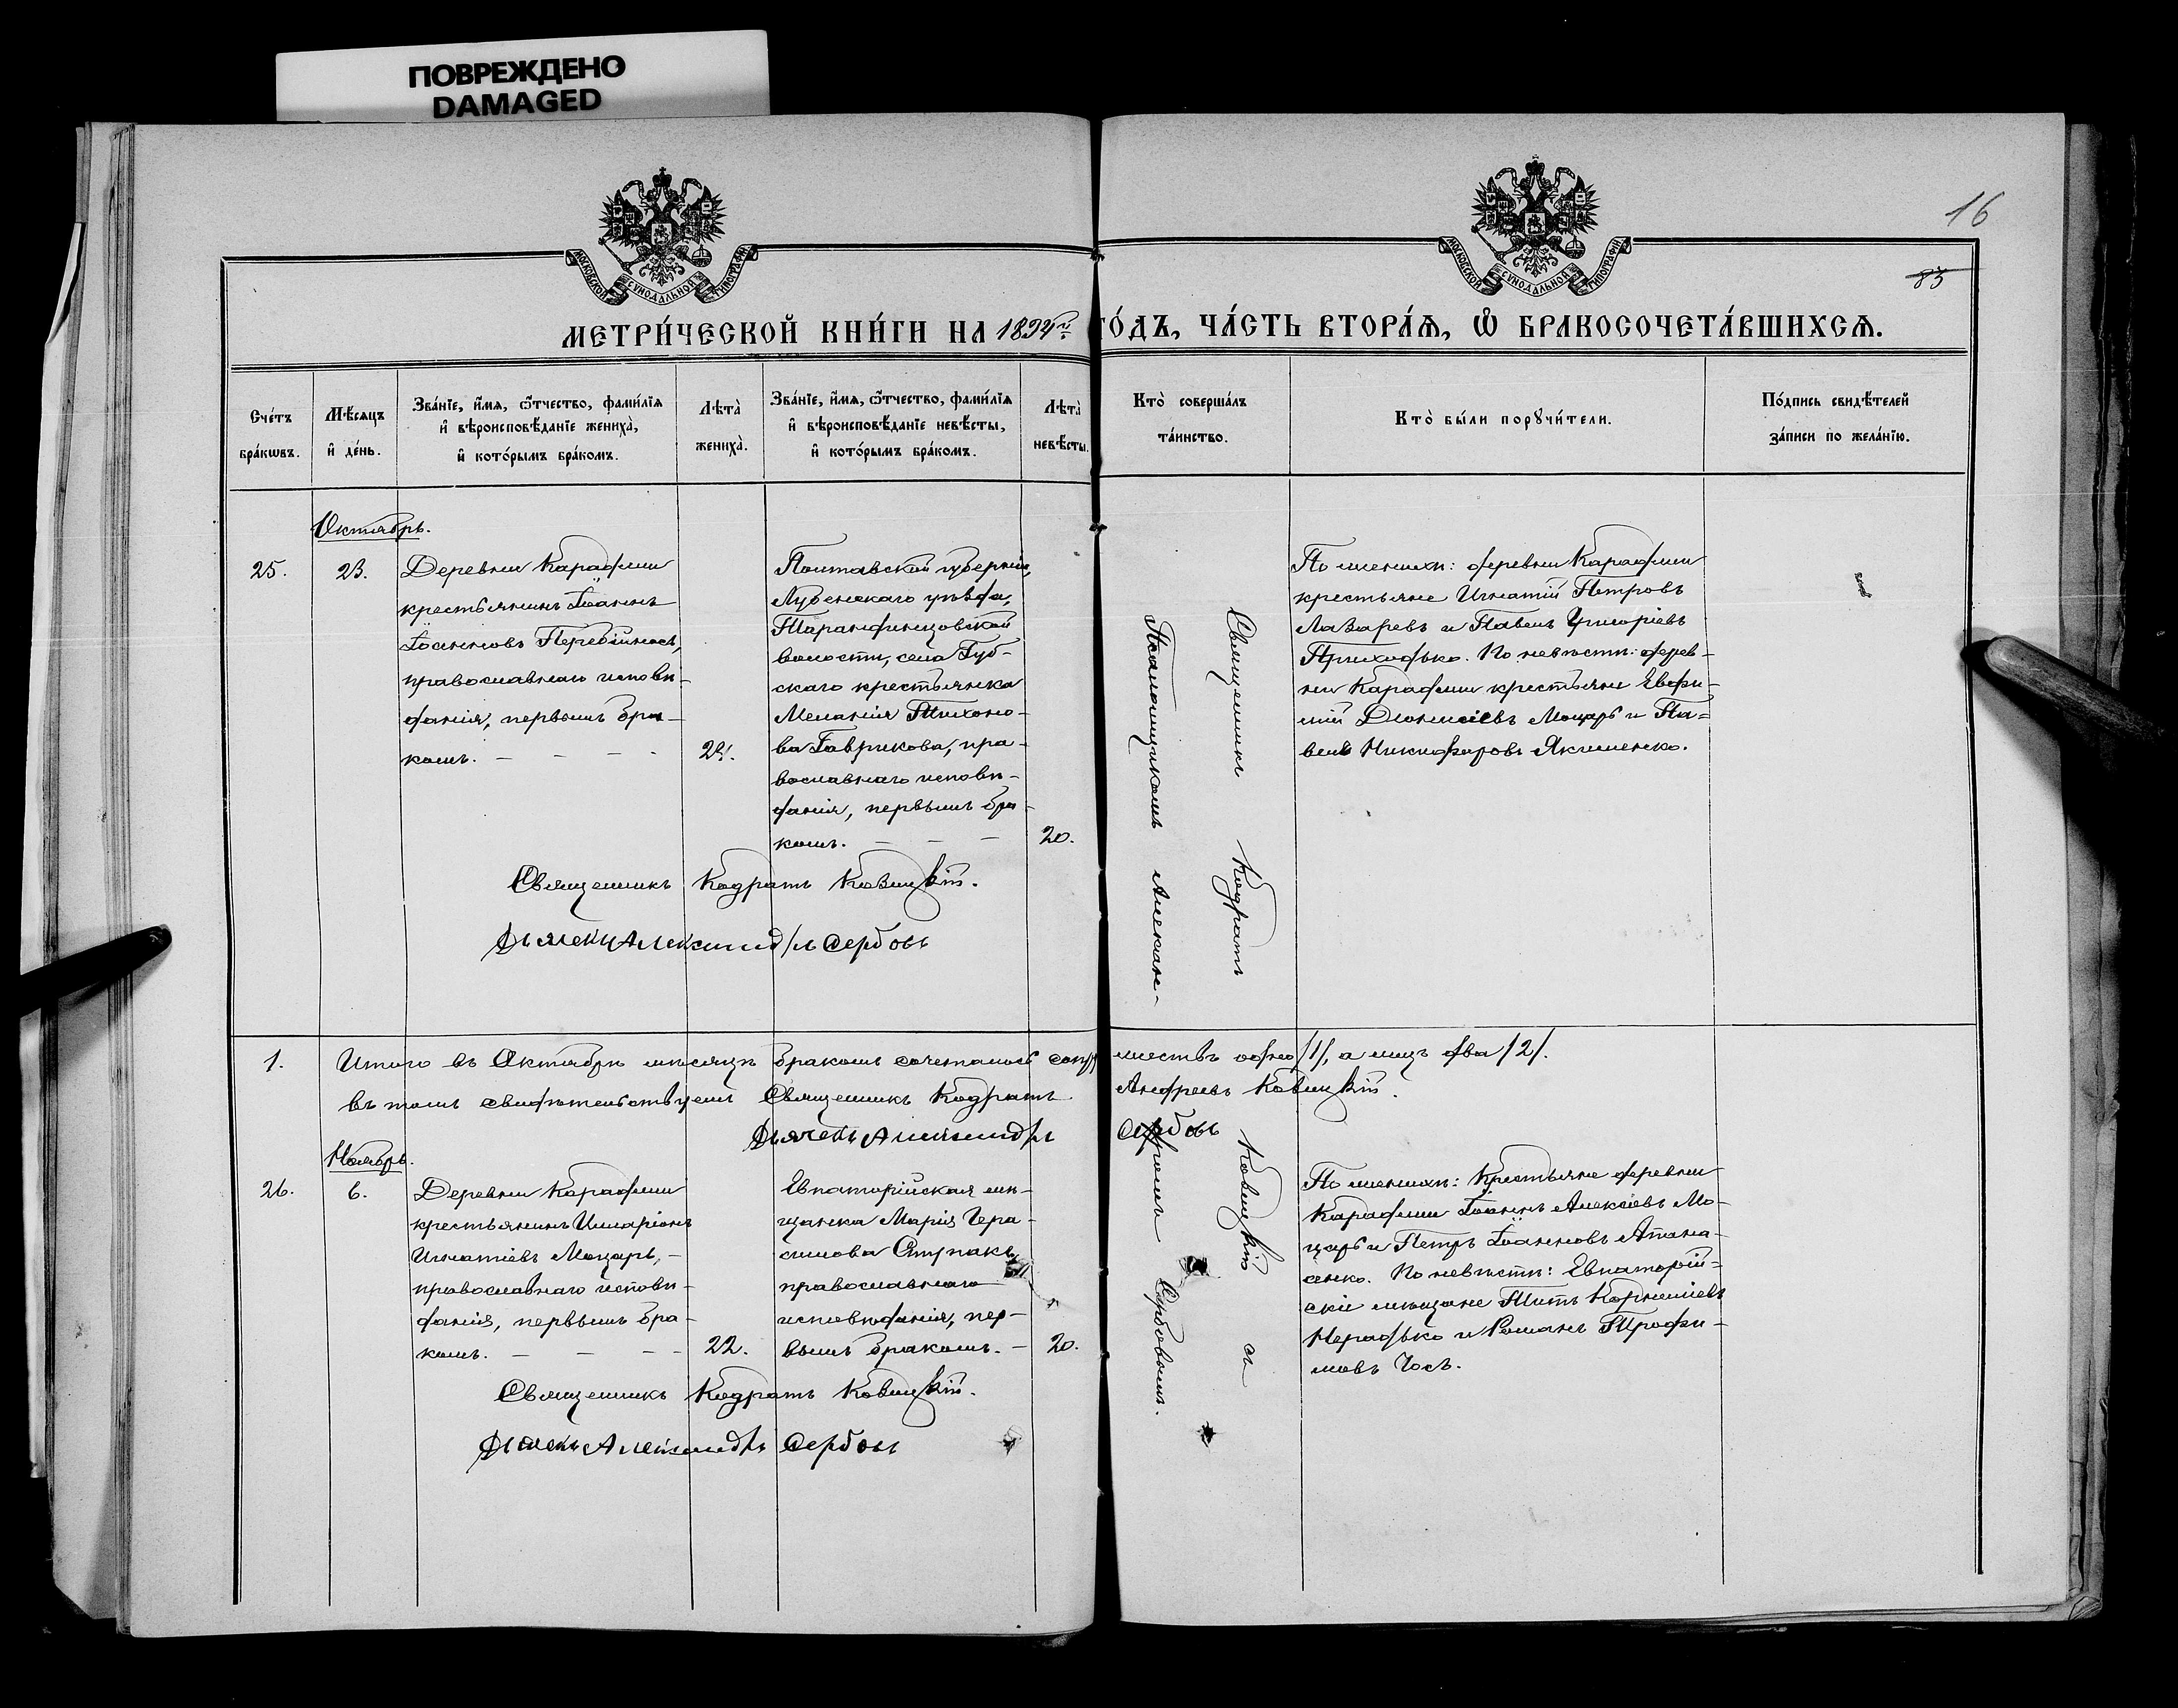 ПОВРЕЖДЕНО
DAMAGED
МОСКОВСКОЙ СУНОДАЛЬНОЙ ТИПОГРАФІИ
МОСКОВСКОЙ СУНОДАЛЬНОЙ ТИПОГРАФІИ
16
83
МЕТРИ́ЧЕСКОЙ КНИ́ГИ НА 1894й
ГО́ДЪ, ЧА́СТЬ ВТОРА́Ѧ, Ѽ БРАКОСОЧЕТА́ВШИХСѦ.
Сче́тъ
бра́кѡвъ.
Мѣ́сяцъ
и҆ де́нь.
Зва́нїе, и҆́мѧ, ѻ҆́тчество, фами́лїѧ
и҆ вѣроисповѣ́данїе жениха̀,
и҆ кото́рымъ бра́комъ.
Лѣта̀
жениха̀.
Зва́нїе, и҆́мѧ, ѻ҆́тчество, фами́лїѧ
и҆ вѣроисповѣ́данїе невѣ́сты,
и҆ кото́рымъ бра́комъ.
Лѣта̀
невѣ́сты.
Кто̀ соверша́лъ
та́инство.
Кто̀ бы́ли порꙋчи́тели.
По́дпись свидѣ́телей
за́писи по жела́нїю.
Октябрь.
25.
23.
Деревни Караджи
крестьянинъ Іоаннъ
Іоанновъ Перебійносъ,
православнаго исповѣ-
данія, первымъ бра-
комъ. - - - -
21.
Полтавской губерніи,
Лубенскаго уѣзда,
Тарандинцовской
волости, села Губ-
скаго крестьянка
Меланія Тихоно-
ва Гаврикова, пра-
вославнаго исповѣ-
данія, первымъ бра-
комъ. - - -
20.
Священникъ Кодратъ
Псаломщикомъ Алексан-
По женихѣ: деревни Караджи
крестьяне Игнатій Петровъ
Лазаревъ и Павелъ Григоріевъ
Приходько. По невѣсти: дерев-
ни Караджи крестьяне Евфи-
мій Діонисіевъ Моцарь и Па-
велъ Никифоровъ Якименко.
Священникъ Кодратъ Ковицкій.
Дьячекъ Александръ Сербовъ
1.
Итого въ Октябрѣ мѣсяцѣ бракомъ сочеталось супружествъ одно /1/, а лицъ два /2/.
въ томъ свидѣтельствуемъ Священникъ Кодратъ Андреевъ Ковицкій.
Дьячекъ Александръ Сербовъ
Ноябрь.
26.
6.
Деревни Караджи
крестьянинъ Иларіонъ
Игнатіевъ Моцарь, -
православнаго исповѣ-
данія, первымъ бра-
комъ. - - - -
22.
Евпаторійская мѣ-
щанка Марія Гера-
симова Ступакъ,
православнаго
исповѣданія, пер-
вымъ бракомъ. -
20.
Ковицкій съ
дромъ Сербовымъ.
По женихѣ: Крестьяне деревни
Караджи Іоаннъ Алексіевъ Мо-
царь и Петръ Іоанновъ Атана-
сенко. По невѣсти: Евпаторій-
скіе мѣщане Титъ Корниліевъ
Нерадько и Романъ Трофи-
мовъ Чосъ.
Священникъ Кодратъ Ковицкій.
Дьячекъ Александръ Сербовъ